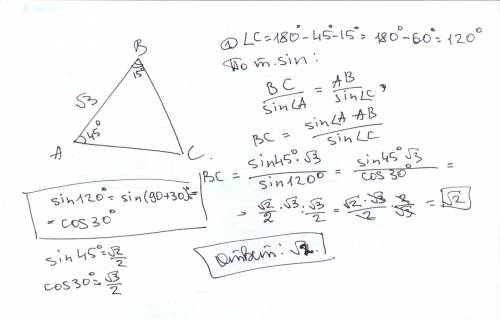 B
15°
√3
45°
A
C
① ∠C = 180° - 45° - 15° = 180° - 60° = 120°
По т. sin:
BC/sin∠A = AB/sin∠C,
BC = sin∠A · AB/sin∠C
BC = sin45° · √3/sin120° = sin45° √3/cos30° =
= √2/2 · √3 : √3/2 = √2 · √3/2 · 2/√3 = √2
Ответ: √2.
sin120° = sin(90+30)° =
= cos30°
sin45° = √2/2
cos30° = √3/2